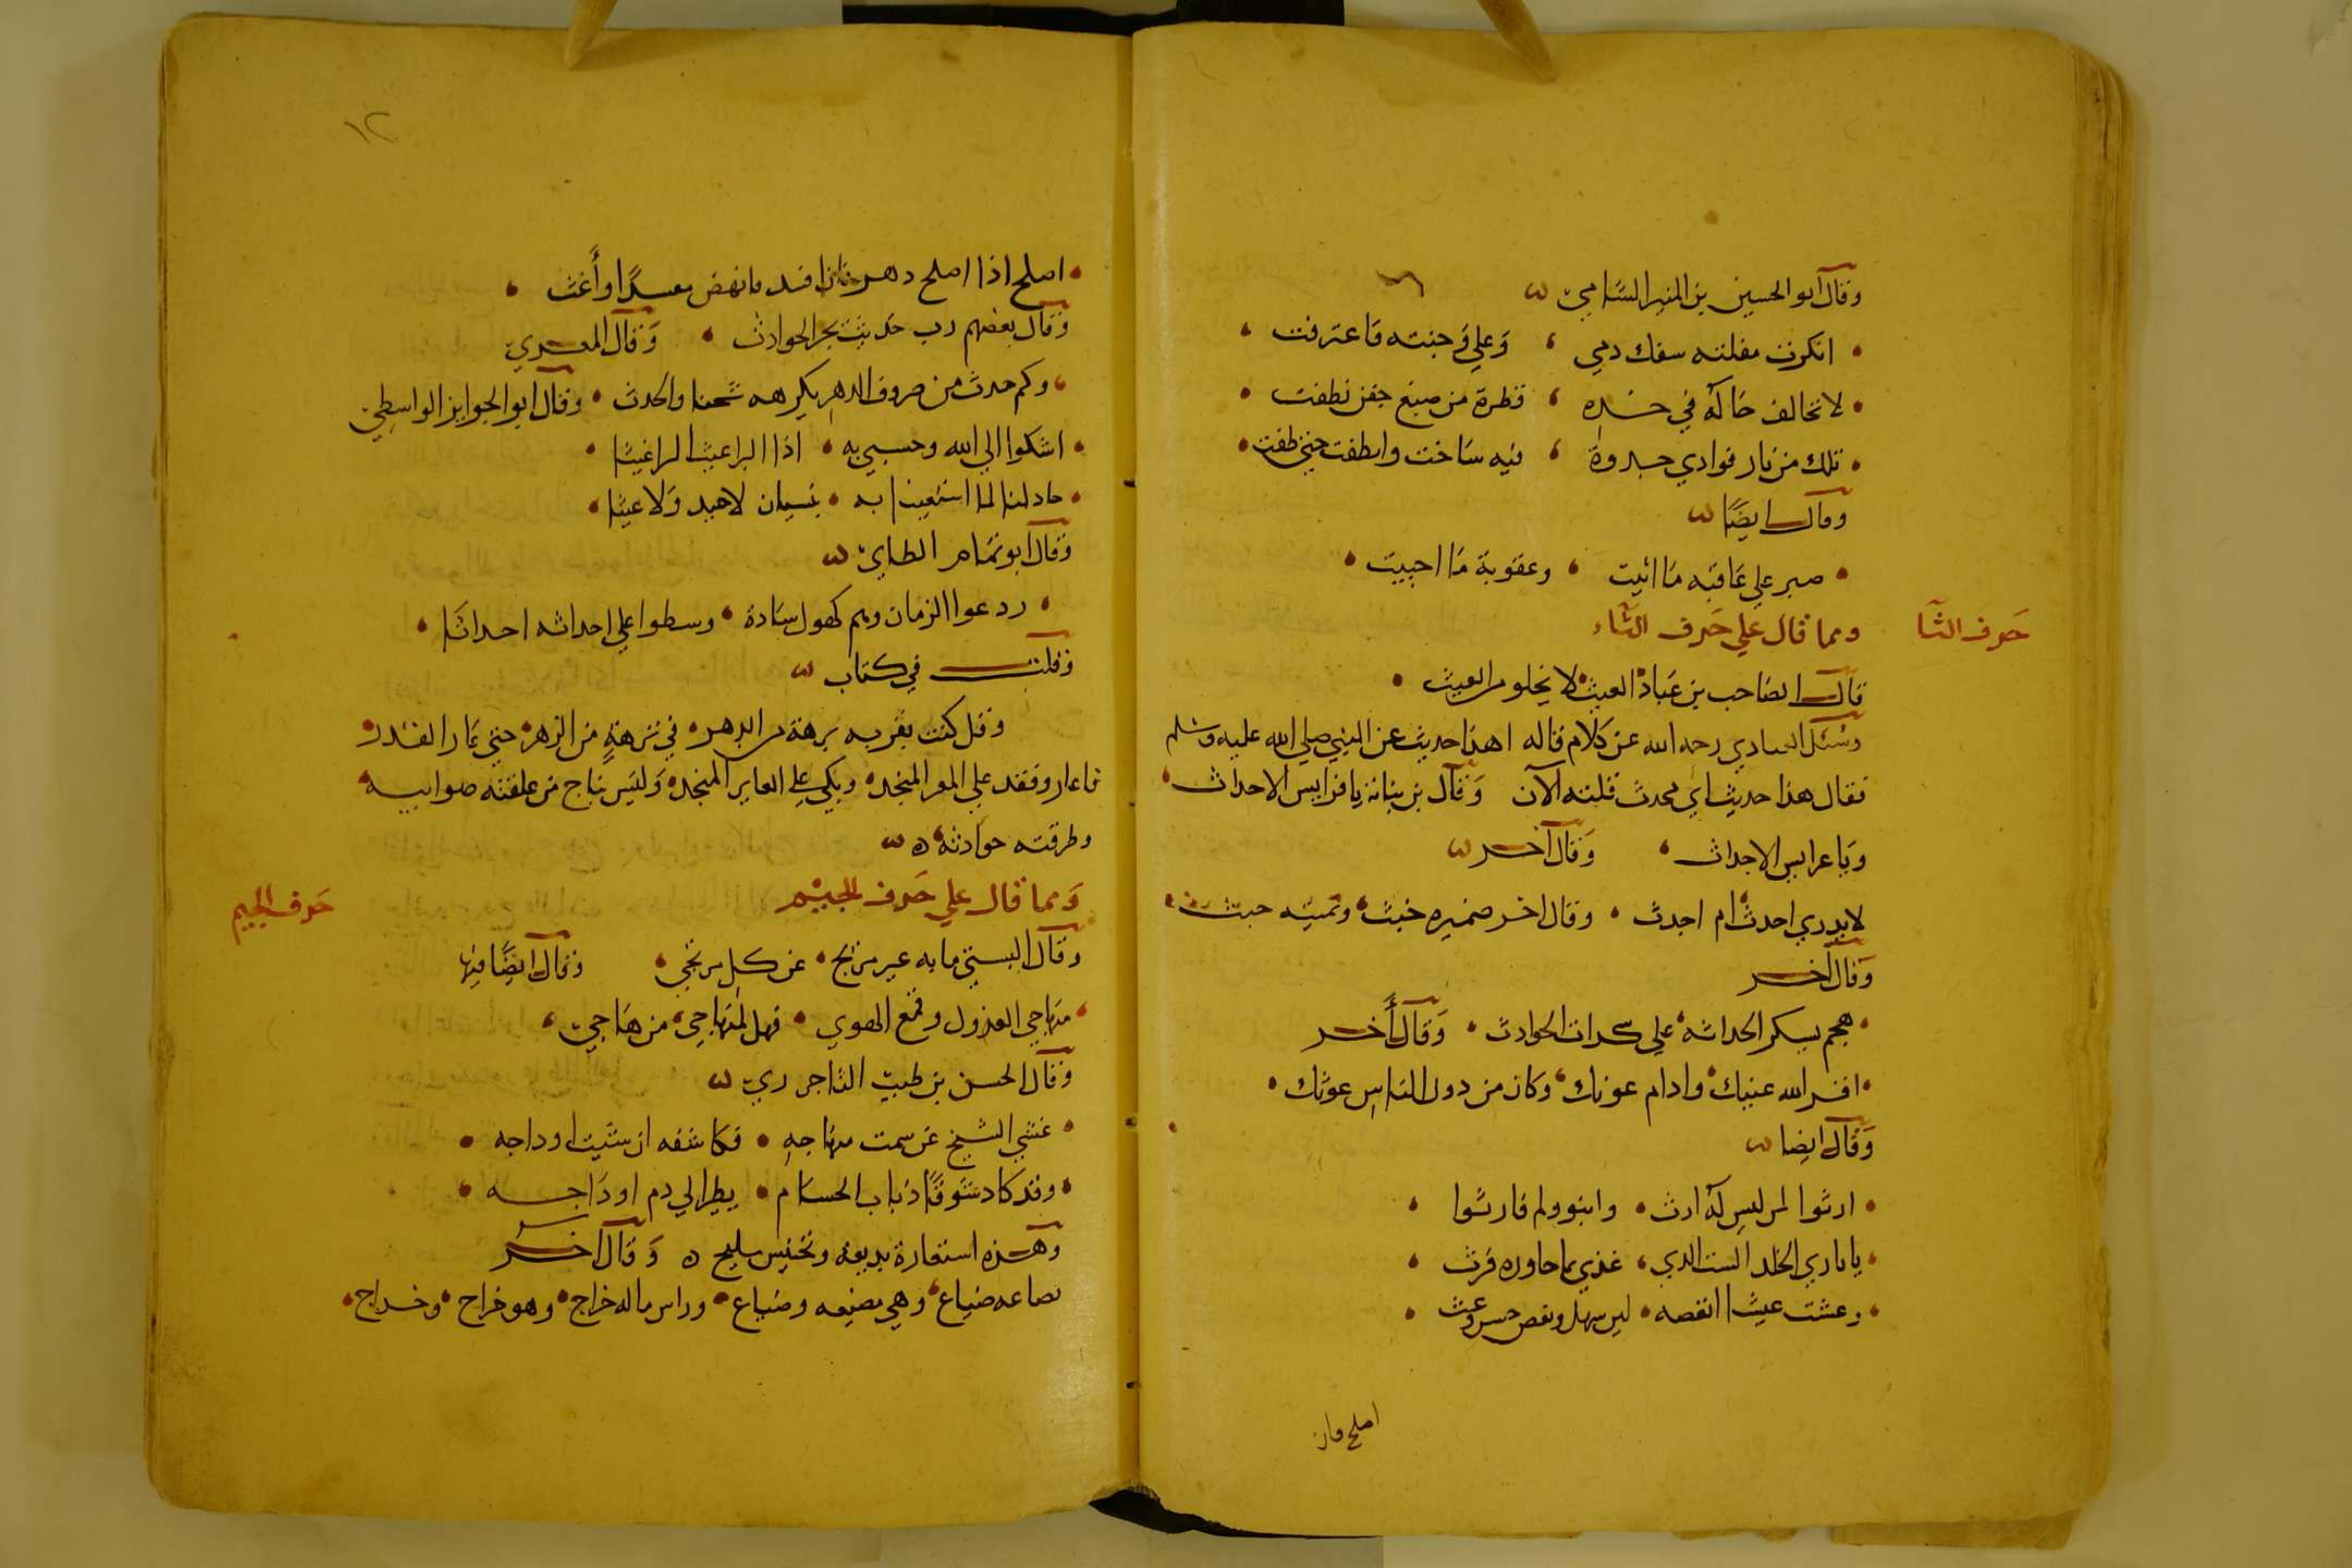 وقال ابو الحسين بن المنير الشامي
انكرت مقلته سفك دمي ، وعلي وجنته فاعترفت
لا تخالف خاله في خده ، قطرة من صبغ جفن نطفت
تلك من نار فوادي جدوة ، فيه ساخت وانطفت حين طفت
وقال ايضا
صبر علي عاقبه ما اتيت ، وعقوبة ما اجبيت
حرف الثا
ومما قال علي حرف الثاء
قال الصاحب بن عباد العيث لا يخلو من العيث
وسئل العبادي رحمه الله عن كلام قاله اهذا حديث عن النبي صلي الله عليه وسلم
فقال هذا حديث اي محدث قلته الآن وقال بن نباتة يا فرايس الاحداث
ويا عرايس الاجداث ، وقال آخر
لا يدري احدث ام اجدث وقال اخر ضميره خبث ويمينه حنث
وقال آخر
هجم بسكر الحداثه علي سكرات الحوادث وقال أخر
اقر الله عينيك وادام عونك وكان من دون الناس غوثك
وقال ايضا
ارثوا لمن ليس له ارث وابنو ولم فارثوا
يا باري الخلد الست الدي ، غذي بما حاوره فرث
وعشت عيشا انقصه ليس سهل ونقص حسه وعث
املح وان
١٢
املح اذا املح دهر فان افسد فانهض مفسدا وأغث
وقال بعضهم رب حديث يجر الحوادث وقال المعري
وكم حدث من صروف الدهر يكرهه شخنا والحدث وقال ابو الجوايز الواسطي
اشكوا الي الله وحسبي به اذا البراغيث الراغيثا
حادلنا لما استغينا به نسيان لا غيد ولا غيثا
وقال ابو تمام الطاي
ردعوا الزمان وهم كهول سادة وسطوا علي احداثه احداثا
وقلت في كتاب
وقل كنت بقربه برهة من الدهر في نزهة من الزهر حتي غار القدر
فاغار وفقد علي المغر المنجد وبكي علي الغاير المنجد وليس بناج من علقته صوايبه
وطرقته حوادثه ه
حرف الجيم
ومما قال علي حرف الجيم
وقال البستي ما به غير مزبح عن كل مرتجي وقال ايضا فيها
منهاجي العذول وقمع الهوي فهل لمنهاجي من هاجي
وقال الحسن بن طبيب الناجرري
غشي الشيخ عن سمت منهاجه فكاشفه ان شئت اوداجه
وقد كاد شوقا ذباب الحسام يطير الي دم اوداجه
وهذه استعارة بديعة وتجنيس مليح ه وقال اخر
بضاعه ضياع وهي مضيعه وضباع وراس ماله خراج وهو خراج وخداج